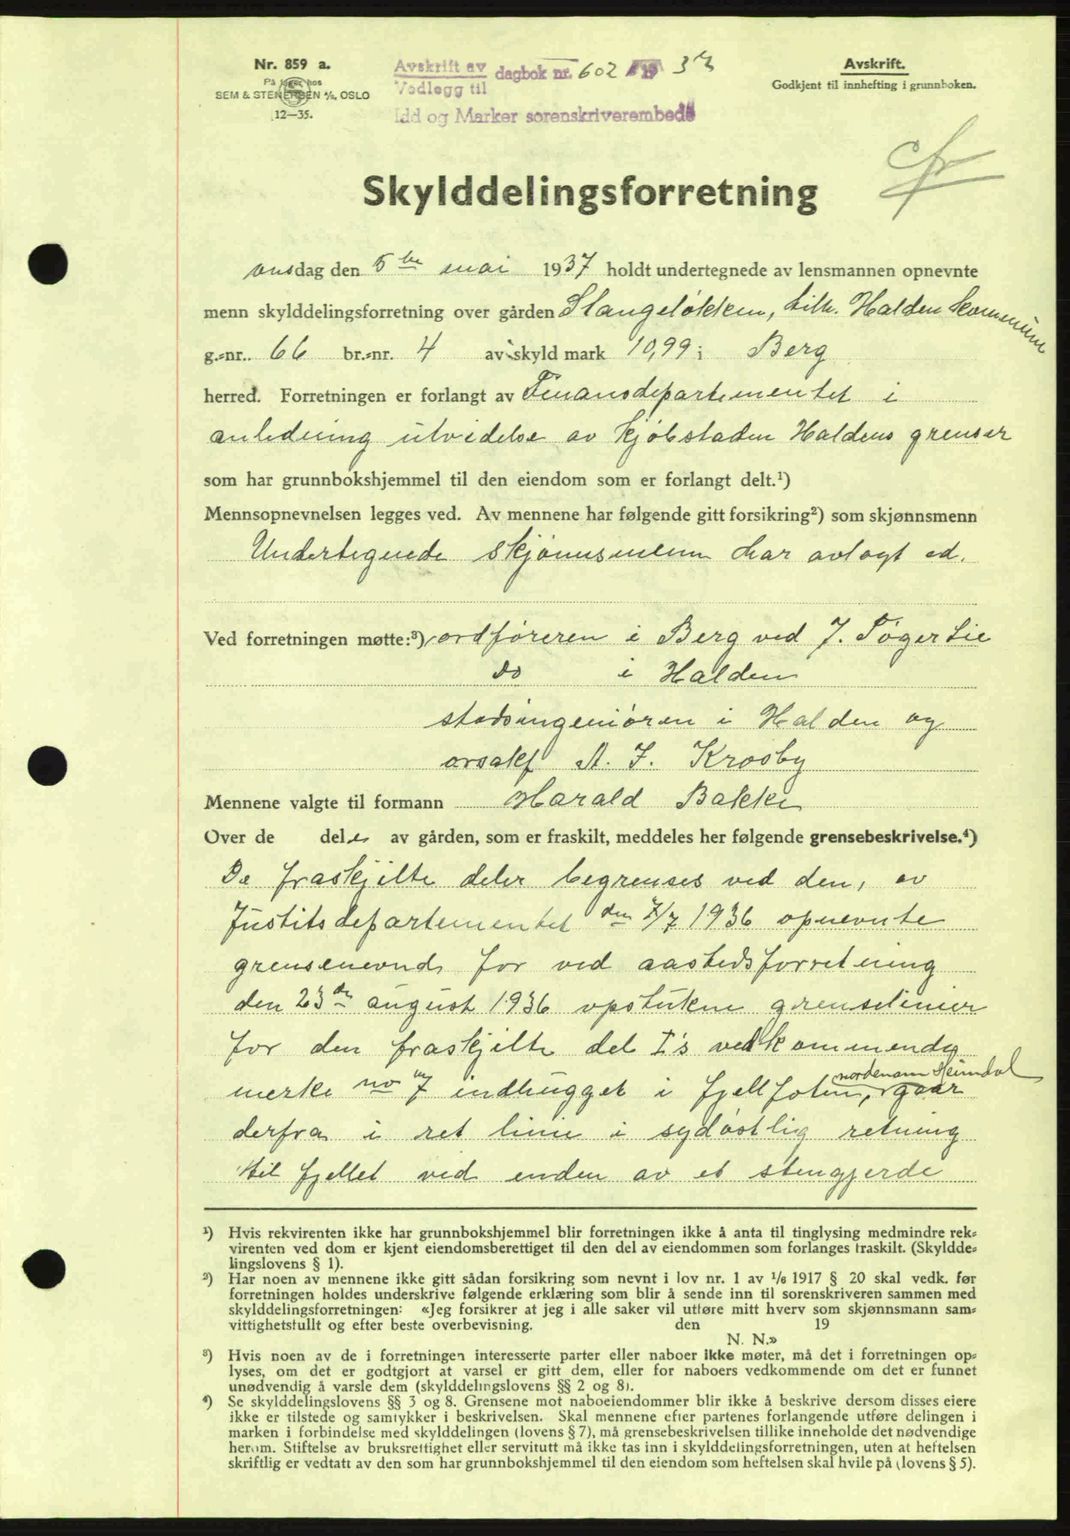 Nr. 859 a.
På lager hos
SEM & STENERSEN A/S, OSLO
12—35.
Avskrift av
Vedlegg til dagbok nr. 602 19 37
Idd og Marker sorenskriverembede
Avskrift.
Godkjent til innhefting i grunnboken.
cfr
Skylddelingsforretning
onsdag den 5te mai 1937 holdt undertegnede av lensmannen opnevnte
menn skylddelingsforretning over gården Stangeløkken, tilh. Halden kommune
g.-nr. 66 br.-nr. 4 av skyld mark 10,99 i Berg
herred. Forretningen er forlangt av Finansdepartementet i
anledning utvidelse av kjøbstaden Haldens grenser
som har grunnbokshjemmel til den eiendom som er forlangt delt.¹)
Mennsopnevnelsen legges ved. Av mennene har følgende gitt forsikring²) som skjønnsmenn
Undertegnede skjønnsmenn har avlagt ed.
Ved forretningen møtte:³) ordføreren i Berg ved J. Føger Lie
do i Halden
stadsingeniøren i Halden og
orsakf A. F. Krosby
Mennene valgte til formann Harald Bakke
Over de dele av gården, som er fraskilt, meddeles her følgende grensebeskrivelse.⁴)
De fraskjilte deler begrenses ved den, av
Justitsdepartementet den 7/7 1936 opnevnte
grensenevnd for ved aastedsforretning
den 23de august 1936 opstukne grenselinier
for den fraskjilte del I's vedkommende
merke no 7 indhugget i fjell foten, nordenom Heimdal gaar
derfra i ret linie i sydøstlig retning
til fjellet ved enden av et stengjerde
¹) Hvis rekvirenten ikke har grunnbokshjemmel blir forretningen ikke å anta til tinglysing medmindre rek-
virenten ved dom er kjent eiendomsberettiget til den del av eiendommen som forlanges fraskilt. (Skyldde-
lingslovens § 1).
²) Har noen av mennene ikke gitt sådan forsikring som nevnt i lov nr. 1 av 1/6 1917 § 20 skal vedk. før
forretningen holdes underskrive følgende erklæring som blir å sende inn til sorenskriveren sammen med
skylddelingsforretningen: «Jeg forsikrer at jeg i alle saker vil utføre mitt hverv som skjønnsmann sam-
vittighetsfullt og efter beste overbevisning. den 19
N. N.»
³) Hvis noen av de i forretningen interesserte parter eller naboer ikke møter, må det i forretningen op-
lyses, om det er godtgjort at varsel er gitt dem, eller for naboers vedkommende om det er funnet
unødvendig å varsle dem (skylddelingslovens §§ 2 og 8).
⁴) Se skylddelingslovens §§ 3 og 8. Grensene mot naboeiendommer blir ikke å beskrive dersom disses eiere
ikke er tilstede og samtykker i beskrivelsen. Skal mennene efter partenes forlangende utføre delingen i
marken i forbindelse med skylddelingen (lovens § 7), må grensebeskrivelsen tillike inneholde det nødvendige
herom. Stiftelse av bruksrettighet eller servitutt må ikke tas inn i skylddelingsforretningen, uten at heftelsen
skriftlig er vedtatt av den som har grunnbokshjemmel til den eiendom som heftelsen skal hvile på (lovens § 5).